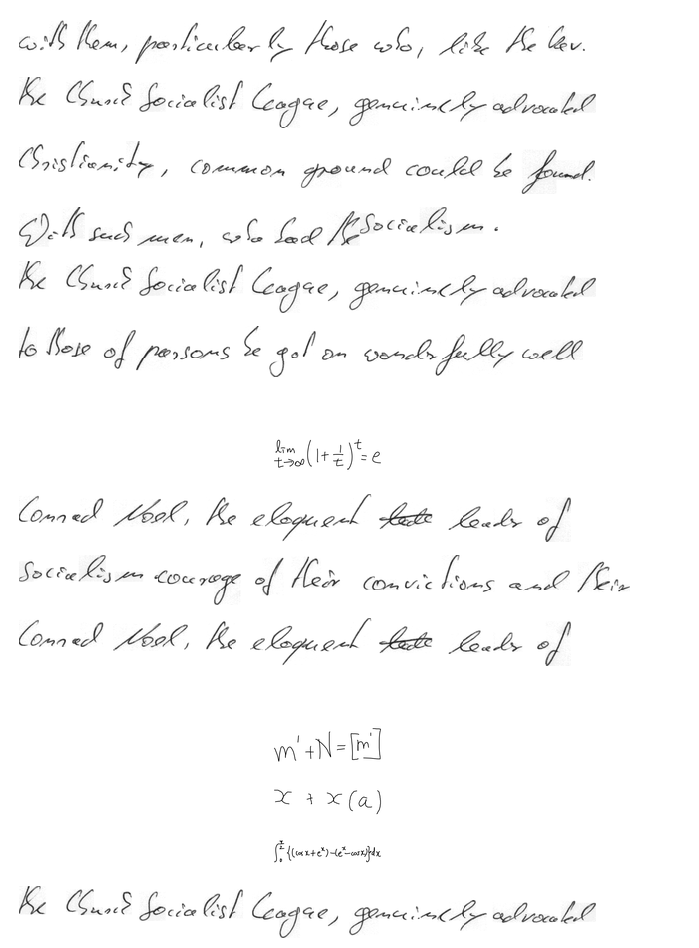 with them, particularly those who, like the Rev.
the Church Socialist League, genuinely advocated
Christianity, common ground could be found.
With such men, who had the Socialism.
the Church Socialist League, genuinely advocated
to those of parsons he got on wonderfully well
\lim_{t \to \infty} (1 + \frac{1}{t})^t = e
Conrad Noel, the eloquent leader of
Socialism courage of their convictions and their
Conrad Noel, the eloquent leader of
m' + N = [m']
x + x(a)
\int_0^{\frac{\pi}{2}} \{(\cos x + e^x) - (e^x - \cos x)\} dx
the Church Socialist League, genuinely advocated